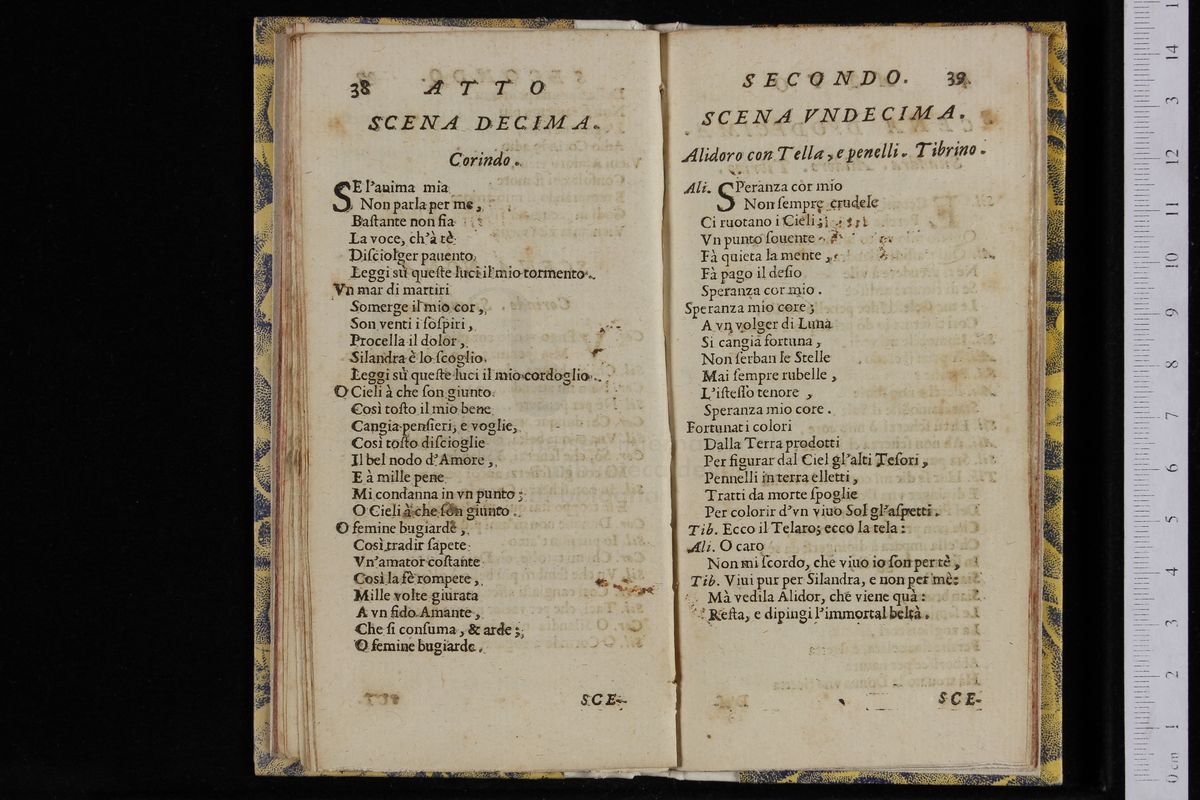 38 ATTO
SCENA DECIMA.
Corindo.
SE l'anima mia
Non parla per me,
Baſtante non fia
La voce, ch'à tè
Diſciolger pauento.
Leggi sù queſte luci il mio tormento.
Vn mar di martiri
Somerge il mio cor,
Son venti i ſoſpiri,
Procella il dolor,
Silandra è lo ſcoglio.
Leggi sù queſte luci il mio cordoglio.
O Cieli à che ſon giunto
Così toſto il mio bene
Cangia penſieri, e voglie,
Così toſto diſcioglie
Il bel nodo d'Amore,
E à mille pene
Mi condanna in vn punto;
O Cieli à che ſon giunto.
O femine bugiarde,
Così tradir ſapete
Vn'amator coſtante
Così la fè rompete,
Mille volte giurata
A vn fido Amante,
Che ſi conſuma, & arde;
O femine bugiarde.
SCE-
SECONDO. 39
SCENA VNDECIMA.
Alidoro con Tella, e penelli. Tibrino.
Ali. SPeranza cor mio
Non ſempre crudele
Ci ruotano i Cieli;
Vn punto ſouente
Fà quieta la mente,
Fà pago il deſio
Speranza cor mio.
Speranza mio core;
A vn volger di Luna
Si cangia fortuna,
Non ſerban le Stelle
Mai ſempre rubelle,
L'iſteſſo tenore,
Speranza mio core.
Fortunati colori
Dalla Terra prodotti
Per figurar dal Ciel gl'alti Teſori,
Pennelli in terra elletti,
Tratti da morte ſpoglie
Per colorir d'vn viuo Sol gl'aſpetti.
Tib. Ecco il Telaro; ecco la tela:
Ali. O caro
Non mi ſcordo, che viuo io ſon per tè,
Tib. Viui pur per Silandra, e non per mè:
Mà vedila Alidor, che viene quà:
Reſta, e dipingi l'immortal beltà.
SCE-